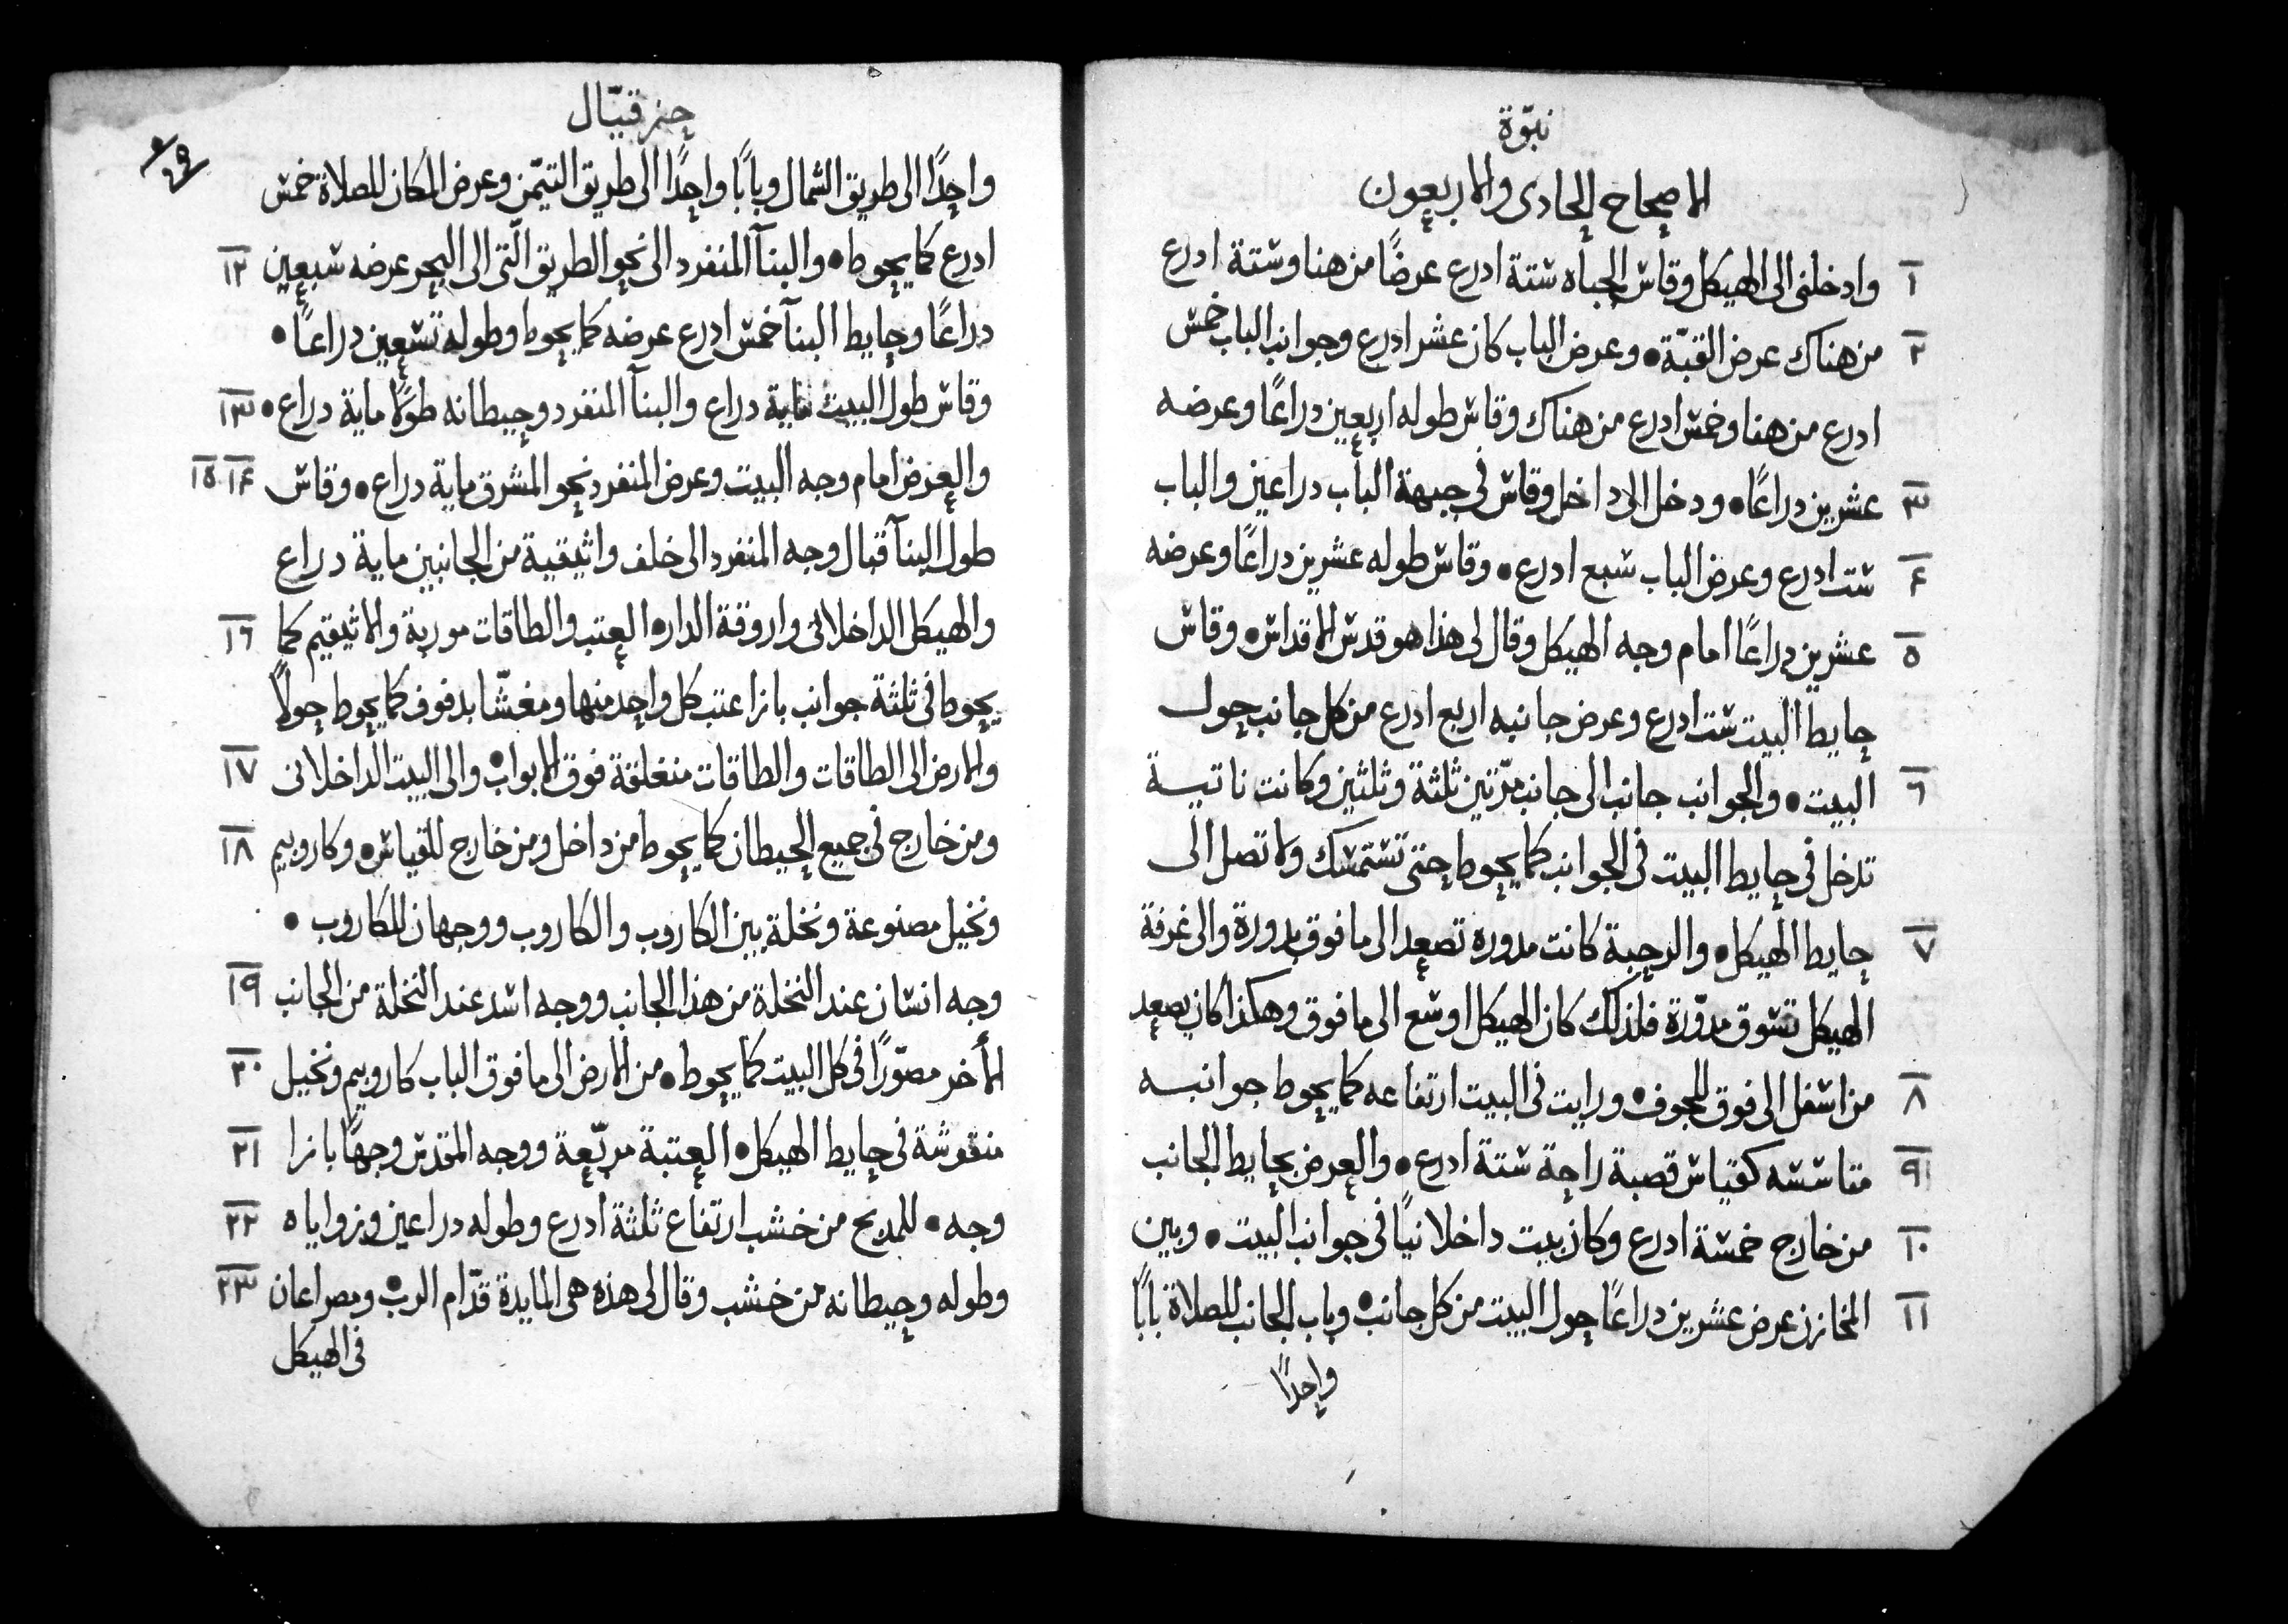 نبّوة
الاصحاح الحادى والاربعون
١ وادخلنى الى الهيكل وقاس الجباه ستة ادرع عرضًا من هنا وستة ادرع
٢ من هناك عرض القبّة • وعرض الباب كان عشر ادرع وجوانب الباب خمس
ادرع من هنا وخمس ادرع من هناك وقاس طوله اربعين دراعًا وعرضه
٣ عشرين دراعًا • ودخل الى داخل وقاس فى جبهة الباب دراعين والباب
٤ ست ادرع وعرض الباب سبع ادرع • وقاس طوله عشرين دراعًا وعرضه
٥ عشرين دراعًا امام وجه الهيكل وقال لى هذا هو قدس الاقداس • وقاس
حايط البيت ست ادرع وعرض جانبه اربع ادرع من كل جانب حول
٦ البيت • والجوانب جانب الى جانب مرّتين ثلثة وثلثين وكانت ناتيسة
تدخل فى حايط البيت فى الجوانب كما يحوط حتى تستمسك ولا تصل الى
٧ حايط الهيكل • والرحبة كانت مدوره تصعد الى ما فوق بدورة والى غرفة
الهيكل تسوق مدوّرة فلذلك كان الهيكل اوسع الى ما فوق وهكذا كان يصعد
٨ من اسفل الى فوق للجوف • ورايت فى البيت ارتفاعه كما يحوط جوانبه
٩ متاسسه كقياس قصبة راحة ستة ادرع • والعرض بحايط الجانب
١٠ من خارج خمسة ادرع وكان بيت داخلانيًا فى جوانب البيت • وبين
١١ المخازن عرض عشرين دراعًا حول البيت من كل جانب • وباب الجانب للصلاة بابًا
واحدًا
حزقيّال
واحدًا الى طريق الشمال وبابًا واحدًا الى طريق التيمّن وعرض المكان للصلاة خمس
ادرع كما يحوط • والبنآ المنفرد الى نحو الطريق الّتى الى البحر عرضه سبعين ١٢
دراعًا وحايط البنآ خمس ادرع عرضه كما يحوط وطوله تسعين دراعًا •
وقاس طول البيت ماية دراع والبنآ المنفرد وحيطانه طولًا ماية دراع • ١٣
والعرض امام وجه البيت وعرض المنفرد نحو المشرق ماية دراع • وقاس ١٤ ١٥
طول البنآ قبال وجه المنفرد الى خلف واثيقية من الجانبين ماية دراع
والهيكل الداخلانى واروقة الدار • العتب والطاقات موربة والاثيقيم كما ١٦
يحوط فى ثلثة جوانب بازا عتب كل واحد منها ومغشّا بدفوف كما يحوط حولًا
والارض الى الطاقات والطاقات منغلقة فوق الابواب • والى البيت الداخلانى ١٧
ومن خارج فى جميع الحيطان كما يحوط من داخل ومن خارج للقياس • وكاروبيم ١٨
ونخيل مصنوعة ونخلة بين الكاروب والكاروب ووجهان للكاروب •
وجه انسان عند النخلة من هذا الجانب ووجه اسد عند النخلة من الجانب ١٩
الأخر مصوّرًا فى كل البيت كما يحوط • من الارض الى ما فوق الباب كاروبيم ونخيل ٢٠
منقوشة فى حايط الهيكل • العتبة مربّعة ووجه المقدس وجهًا بازا ٢١
وجه • للمدبح من خشب ارتفاع ثلثة ادرع وطوله دراعين وزواياه ٢٢
وطوله وحيطانه من خشب وقال لى هذه هى المايدة قدّام الرب • ومصراعان ٢٣
فى الهيكل